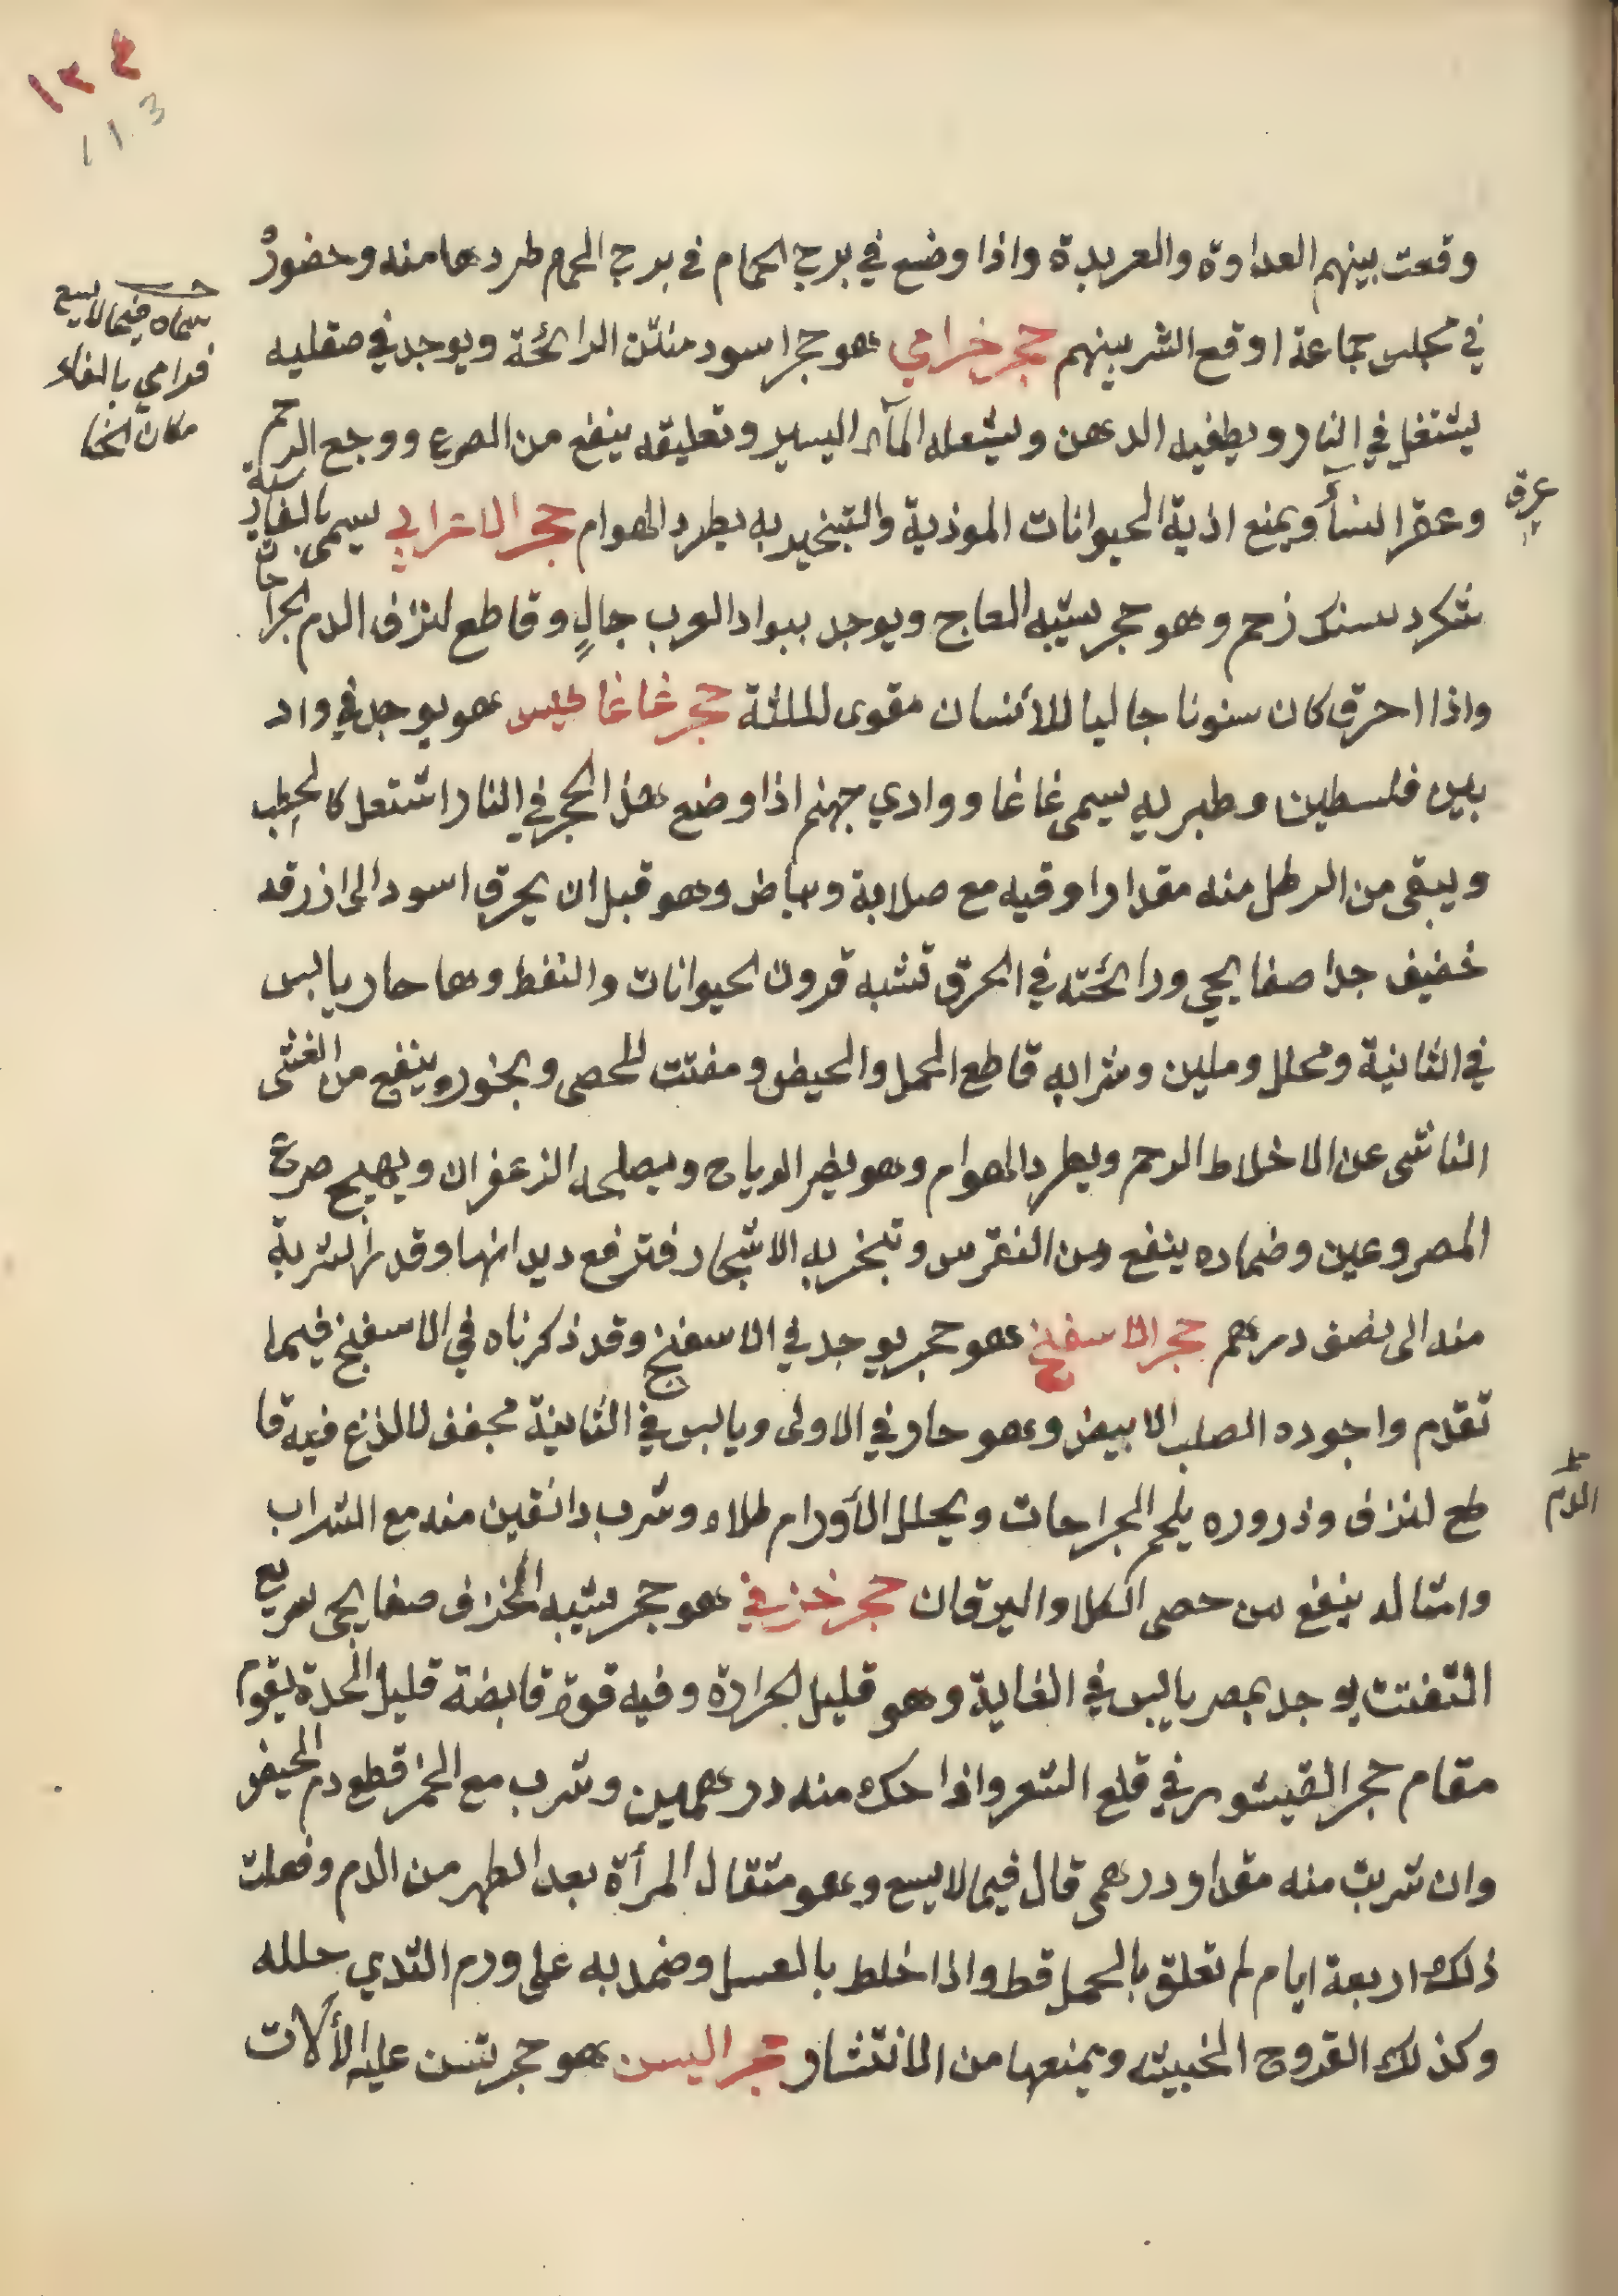 ١٢٤
113
وقعت بينهم العداوة والعربدة واذا وضع في برج الحمام في برج الحمام طردها منه وحضورُ
في مجلس جماعة اوقع الشر بينهم حجر خرامي هو حجر اسود منتن الرائحة ويوجد في صقليه
يشتغل في النار ويطفيه الدهن ويشعله المآء اليسير وتعليقه ينفع من الصرع ووجع الرحم
وعقر النسأ ويمنع اذية الحيوانات الموذية والتبخير به يطرد الهوام حجر الاعرابي يسمى بالفارسية
شكرد سنك زحم وهو حجر يشبه العاج ويوجد ببواد العرب جالٍ وقاطع لنزف الدم الجراحات
واذا احرق كان سنونا جاليا للأنسان مقوى للثة حجر غاغاطيس هو يوجد في واد
بين فلسطين وطبريه يسمى غاغا ووادي جهنم اذا وضع هذا الحجر في النار اشتعل كالحطب
ويبقى من الرطل منه مقدار اوقيه مع صلابة وبياض وهو قبل ان يحرق اسود الى ازرقه
خفيف جدا صفايحي ورائحته في الحرق تشبه قرون الحيوانات والنفط وها حار يابس
في الثانية ومحلل وملين وشرابه قاطع الحمل والحيض ومفتت للحصى وبخوره ينفع من الغشى
الناشى عن الاخلاط الرحم ويطرد الهوام وهو يضر الرياح ويصلحه الزعفران ويهيج صرع
المصروعين وضماده ينفع من النقرس وتبخر به الاشجار فترفع ديدانها وقدر الشربة
منه الى نصف درهم حجر الاسفنج هو حجر يوجد في الاسفنج وقد ذكرناه في الاسفنج فيما
تقدم واجوده الصلب الابيض وهو حار في الاولى ويابس في الثانية مجفف لا لذع فيه قا
طع لنزف وذروره يلحم الجراحات ويحلل الأورام طلاء وشرب دانقين منه مع الشراب
وامثاله ينفع من حصى الكلا واليرقان حجر خزفي هو حجر يشبه الخزف صفايحى سريع
التفتت يوجد بمصر يابس في الغاية وهو قليل الحرارة وفيه قوة قابضة قليل الحدة يقوم
مقام حجر القيشور في قلع الشعر واذا حك منه درهمين وشرب مع الخمر قطع دم الحيض
وان شربت منه مقدار درهمى قال فيما لا يسع وهو مثقال المرأة بعد الطهر من الدم وفعلت
ذلك اربعة ايام لم تعلق بالحمل قط واذا خلط بالعسل وضمد به على ورم الثدي حلله
وكذلك القروح الخبيثه ويمنعها من الانتشار حجر اليسن هو حجر يسن عليه الألات
سماه فيما لا يسع
فرامي بالفاء
مكان الخا
عرق
الدم